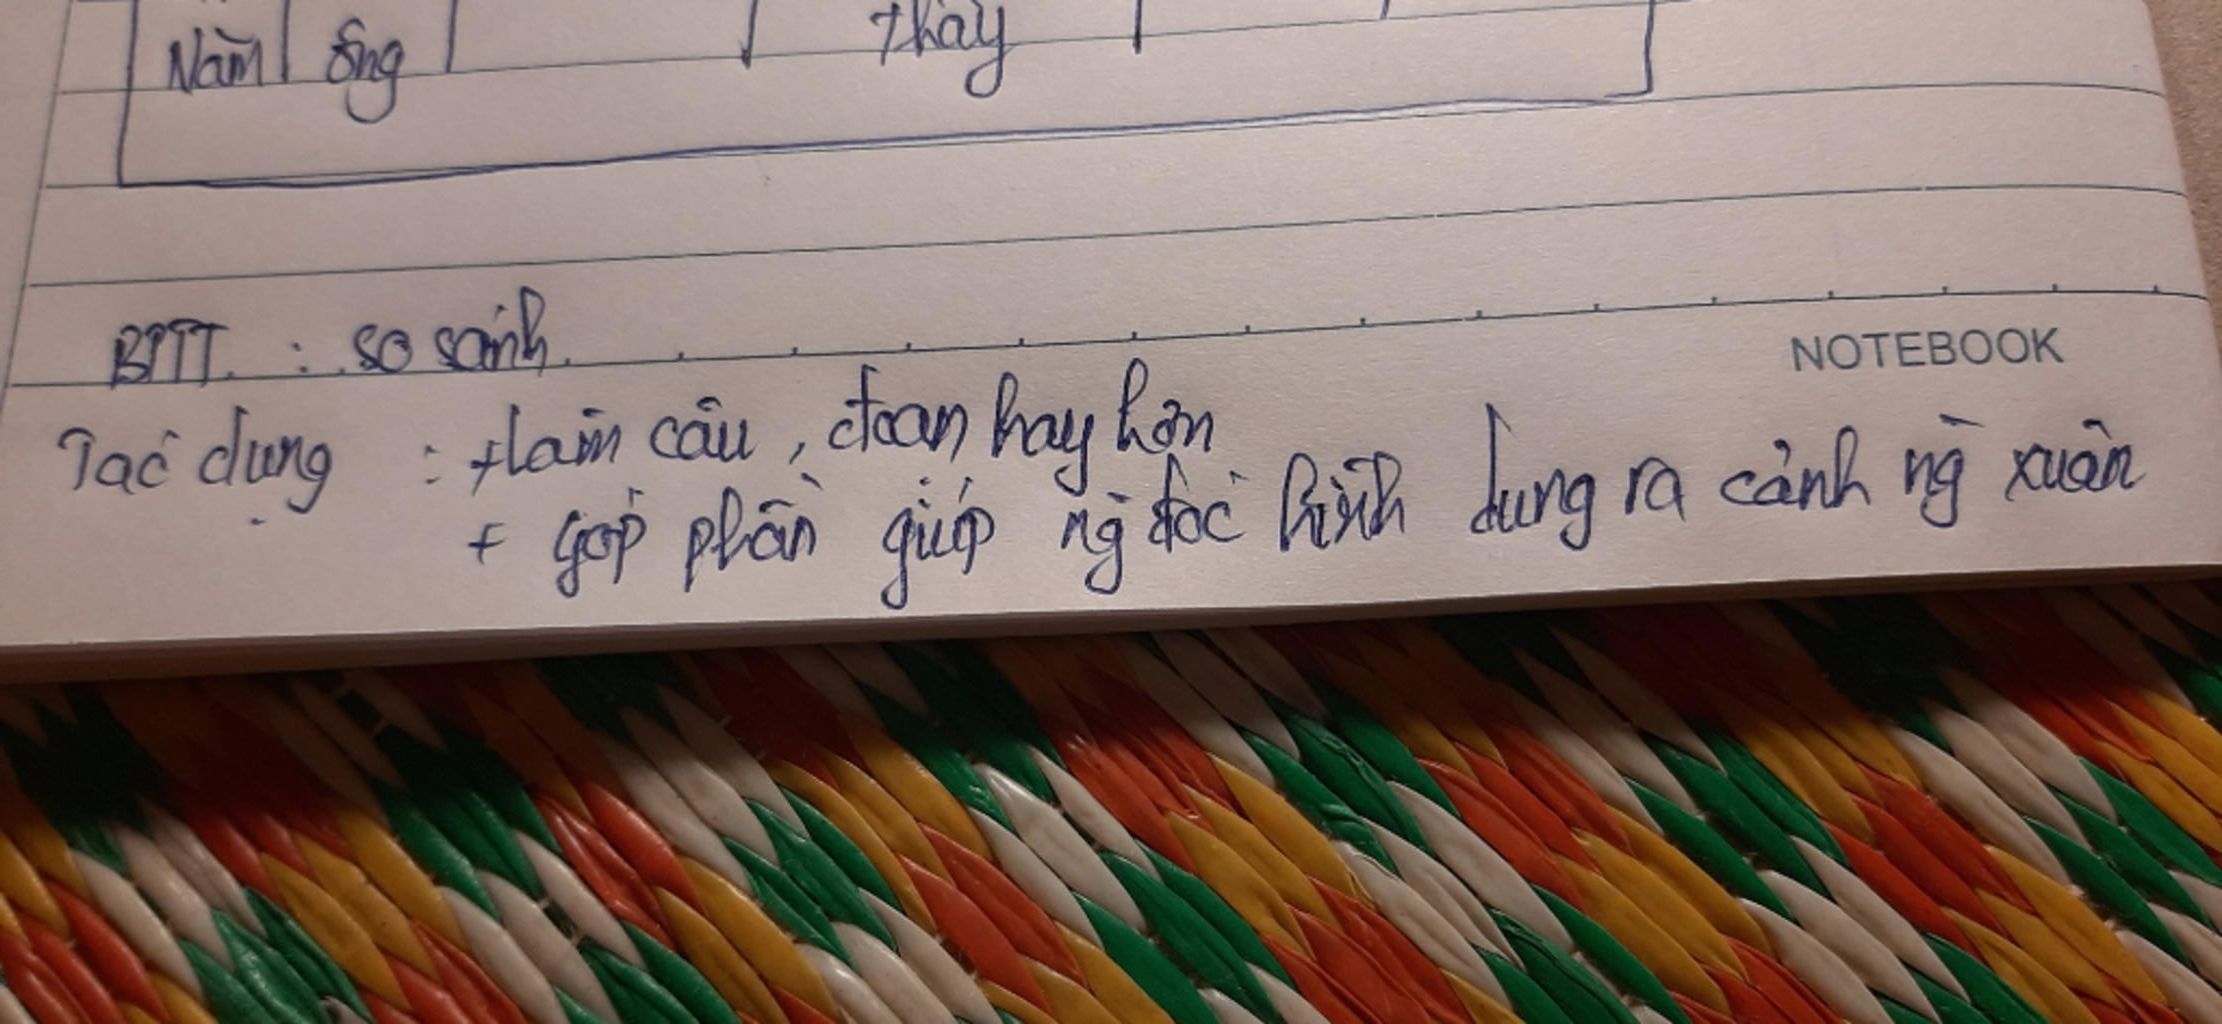 Năm ông thay
BPTT : so sánh
NOTEBOOK
Tác dụng : + làm câu, đoạn hay hơn
+ góp phần giúp ng đọc hình dung ra cảnh ng xuân